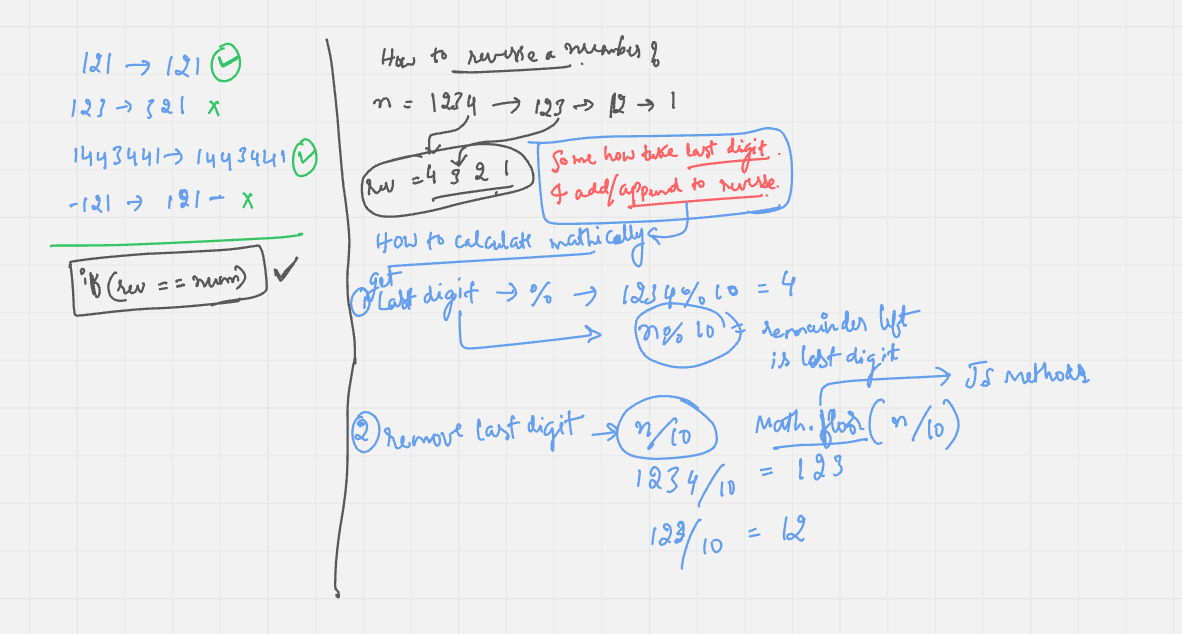 121 → 121
123 → 321 x
1443441 → 1443441
-121 → 121- x
if (rev == num)
How to reverse a number?
n = 1234 → 123 → 12 → 1
rev = 4 3 2 1
Some how take last digit.
& add/append to reverse.
How to calculate mathically
get
① Last digit → % → 1234 % 10 = 4
n % 10 = remainder left
is last digit
JS methods
② remove last digit → n/10 Math.floor(n/10)
1234/10 = 123
123/10 = 12